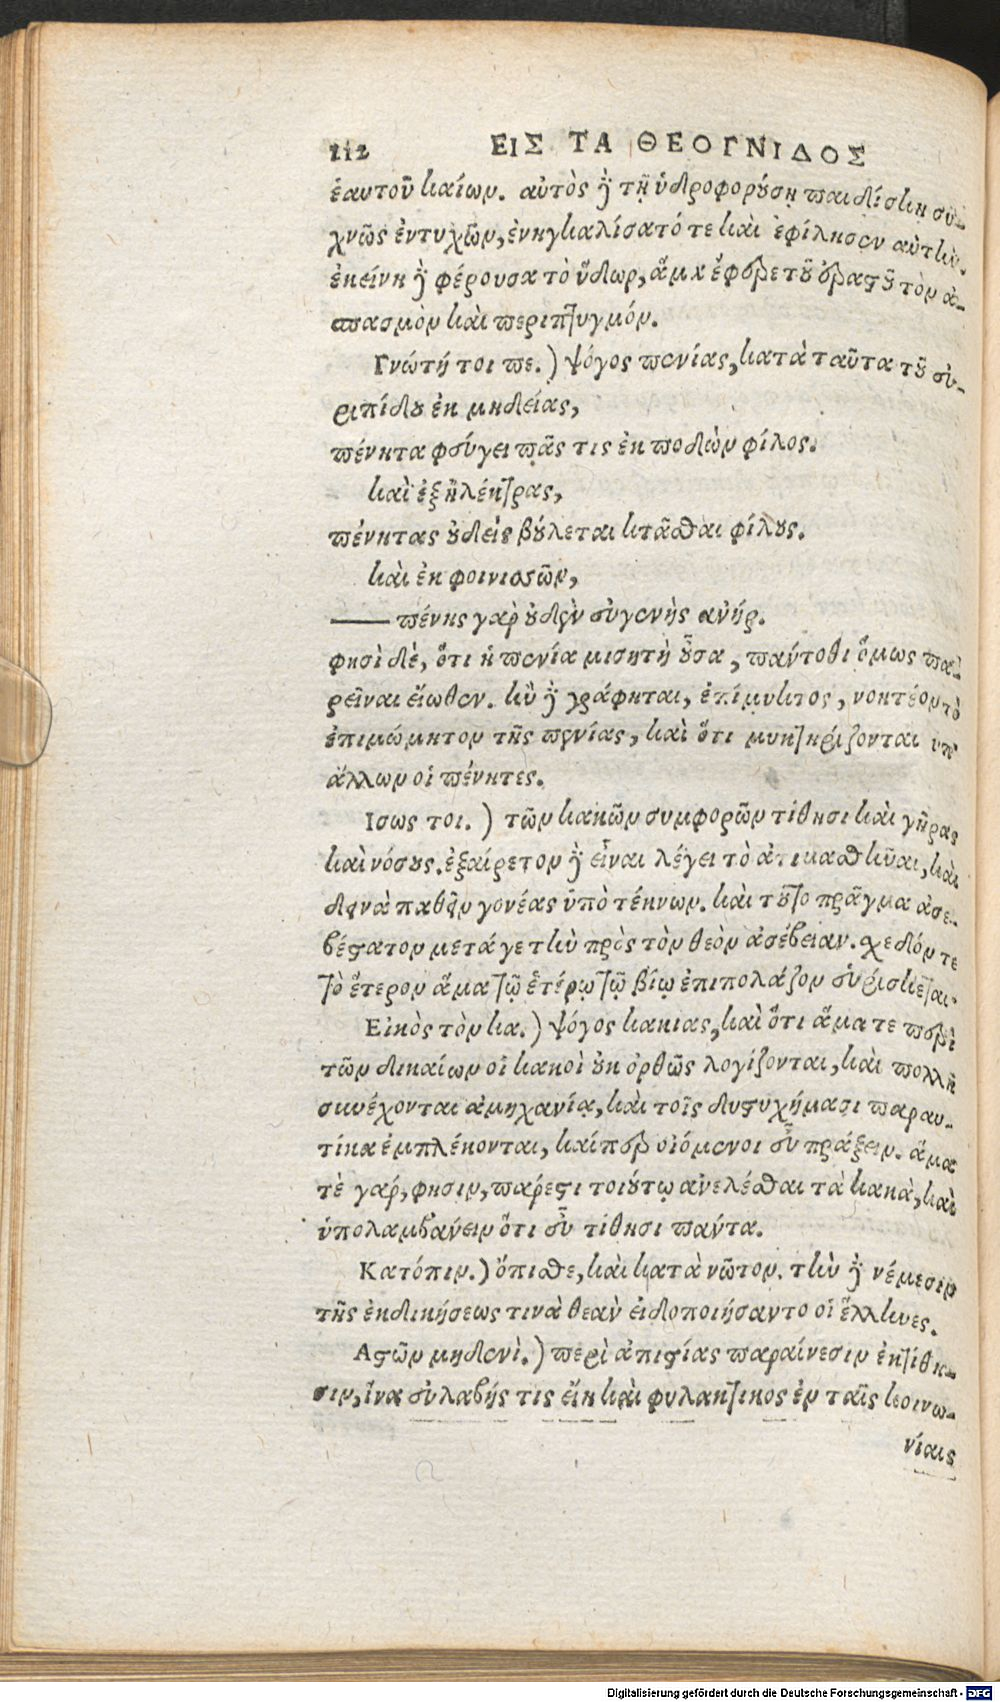 212 ΕΙΣ ΤΑ ΘΕΟΓΝΙΔΟΣ
ἑαυτοῦ καίων. αὐτὸς δὲ τῇ ὑδροφορούσῃ παιδίσκῃ συ-
χνῶς ἐντυχῶν, ἐνηγκαλίσατό τε καὶ ἐφίλησεν αὐτὴν.
ἐκείνη δὲ φέρουσα τὸ ὕδωρ, ἅμα ἔφερε τοῦ ἐραστοῦ τὸν ἀ-
σπασμὸν καὶ περιπτυγμόν.
Γνώτή τοι πε.) ψόγος πενίας, κατὰ ταῦτα τοῦ εὐ-
ριπίδου ἐκ μηδείας,
πένητα φεύγει πᾶς τις ἐκ ποδὼν φίλος.
καὶ ἐξ ἠλέκτρας,
πένητας οὐδεὶς βούλεται κτᾶσθαι φίλους.
καὶ ἐκ φοινισσῶν,
—— πένης γὰρ οὐδὲν εὐγενὴς ἀνήρ.
φησὶ δὲ, ὅτι ἡ πενία μισητὴ οὖσα, πάντοθι ὅμως πα-
ρεῖναι εἴωθεν. κἂν δὲ γράφηται, ἐπίμυκτος, νοητέον τὸ
ἐπιμώμητον τῆς πενίας, καὶ ὅτι μυκτηρίζονται ὑπ'
ἄλλων οἱ πένητες.
Ισως τοι.) τῶν κακῶν συμφορῶν τίθησι καὶ γῆρας
καὶ νόσους. ἐξαίρετον δὲ εἶναι λέγει τὸ ἀτιμασθῆναι, καὶ
δεινὰ παθεῖν γονέας ὑπὸ τέκνων. καὶ τοῦτο πρᾶγμα ἀσε-
βέστατον μετά γε τὴν πρὸς τὸν θεὸν ἀσέβειαν. σχεδόν τε
τὸ ἕτερον ἅμα τῷ ἑτέρῳ τῷ βίῳ ἐπιπολάζον εὑρίσκεται.
Εἰκὸς τὸν κα.) ψόγος κακίας, καὶ ὅτι ἅμα τε περὶ
τῶν δικαίων οἱ κακοὶ οὐκ ὀρθῶς λογίζονται, καὶ πολλῇ
συνέχονται ἀμηχανίᾳ, καὶ τοῖς δυστυχήμασι παραυ-
τίκα ἐμπλέκονται, καίπερ οἰόμενοι εὖ πράξειν. ἅμα
τὲ γάρ, φησιν, πάρεστι τοιούτῳ ἀνελέσθαι τὰ κακὰ, καὶ
ὑπολαμβάνειν ὅτι εὖ τίθησι πάντα.
Κατόπιν.) ὄπισθε, καὶ κατὰ νῶτον. τὴν δὲ νέμεσιν
τῆς ἐκδικήσεως τινὰ θεὰν εἰδοποιήσαντο οἱ ἕλληνες.
Αστῶν μηδενὶ.) περὶ ἀπιστίας παραίνεσιν ἐκτίθη-
σιν, ἵνα εὐλαβής τις εἴη καὶ φυλακτικὸς ἐν ταῖς κοινω-
νίαις
Digitalisierung gefördert durch die Deutsche Forschungsgemeinschaft - DFG